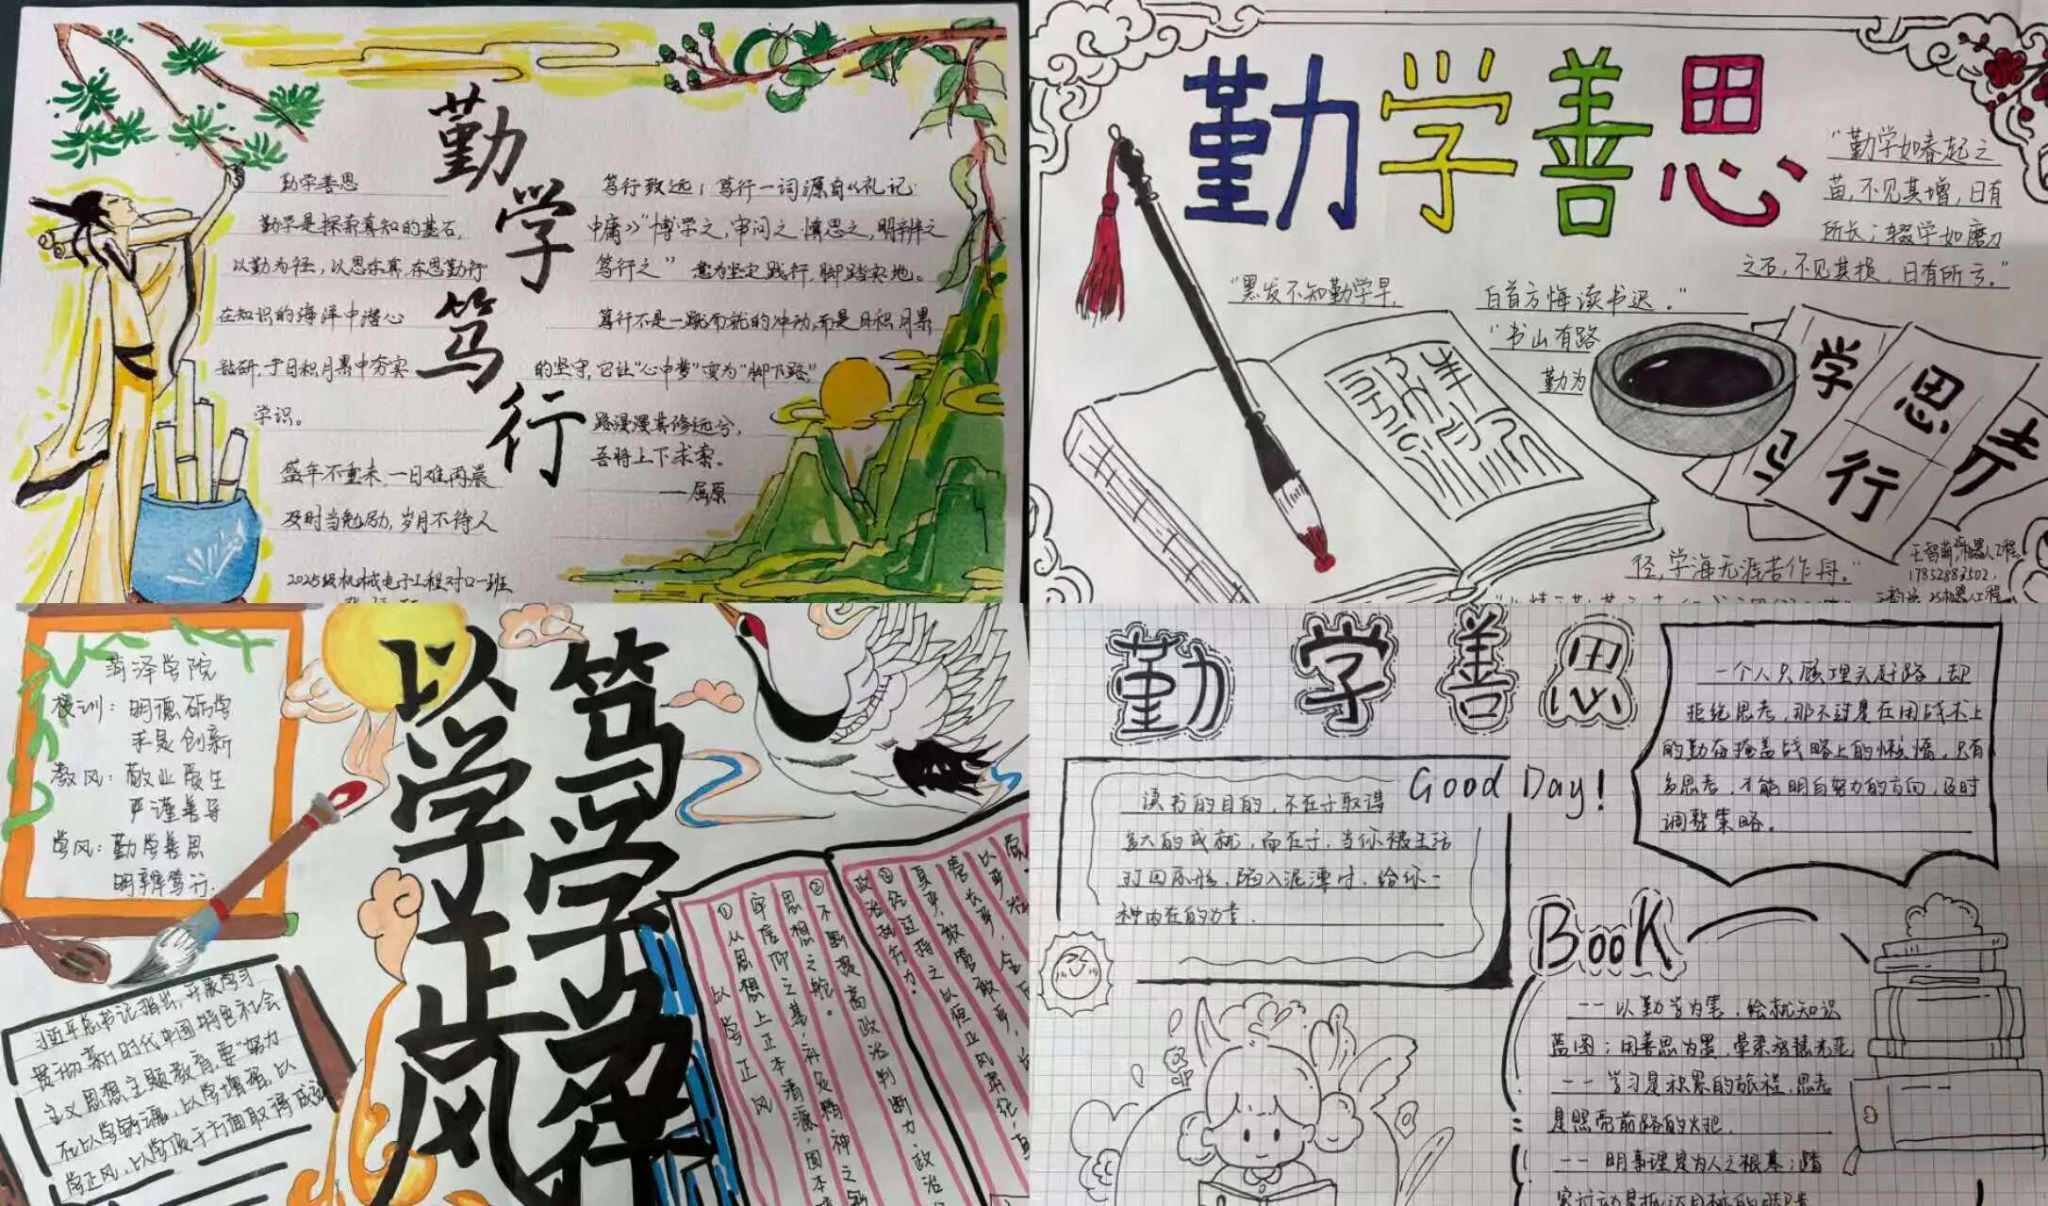 勤学笃行
勤学善思
勤学是探索真知的基石,
以勤为径,以思求真,在思勤行
在知识的海洋中潜心
钻研,于日积月累中夯实
学识。
盛年不重来,一日难再晨
及时当勉励,岁月不待人
2025级机械电子工程对口一班
笃行致远:笃行一词源自《礼记·
中庸》“博学之,审问之,慎思之,明辨之
笃行之”意为坚定践行,脚踏实地。
笃行不是一蹴而就的冲动,而是日积月累
的坚守,它让“心中梦”变为“脚下路”
路漫漫其修远兮,
吾将上下求索。
——屈原
勤学善思
“勤学如春起之
苗,不见其增,日有
所长;辍学如磨刀
之石,不见其损,日有所亏。”
“黑发不知勤学早,
白首方悔读书迟。”
“书山有路
勤为
径,学海无涯苦作舟。”
学
思
行
17852883502,
菏泽学院
校训:明德砺学
求是创新
教风:敬业爱生
严谨善导
学风:勤学善思
明辨笃行.
笃学孕行
以学正风
习近平总书记指出,开展学习
贯彻新时代中国特色社会
主义思想主题教育,要“努力
在以学铸魂,以学增智,以
学正风,以学促干方面取得成效
以学正风
①从思想上正本清源、固本
牢信仰之基、补足精神之
思想之舵。
②不断提高政治判断力、政治
政治执行力。
勤学善思
Good Day!
读书的目的,不在于取得
多大的成就,而在于,当你被生活
打回原形,陷入泥潭时,给你一
种内在的力量.
一个人只顾埋头赶路,却
拒绝思考,那不过是在用战术上
的勤奋掩盖战略上的懒惰。只有
多思考,才能明白努力的方向,及时
调整策略。
BooK
--以勤学为笔,绘就知识
蓝图;用善思为墨,晕染智慧光亮
--学习是积累的旅程,思考
是照亮前路的火把.
--明事理是为人之根基;踏
实行动是抵达目标的